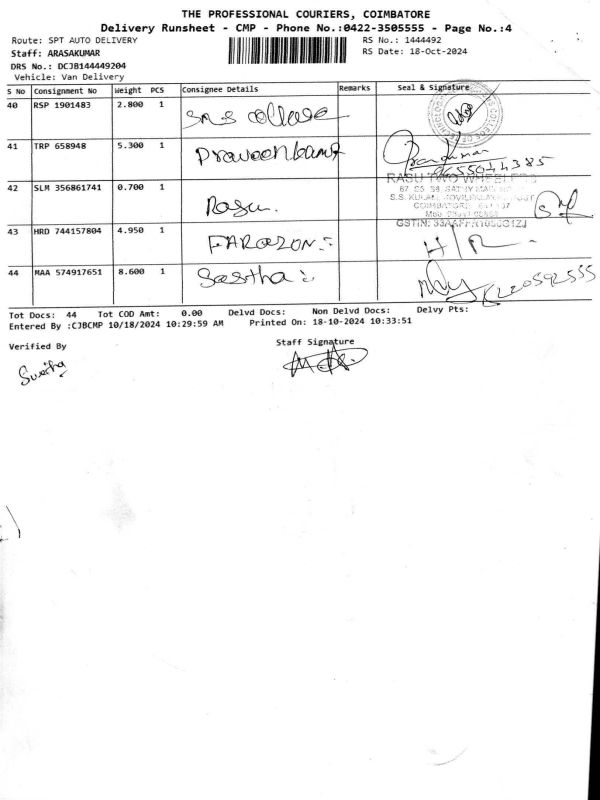 THE PROFESSIONAL COURIERS, COIMBATORE
Delivery Runsheet - CMP - Phone No.:0422-3505555 - Page No.:4
Route: SPT AUTO DELIVERY
RS No.: 1444492
Staff: ARASAKUMAR
RS Date: 18-Oct-2024
DRS No.: DCJB144449204
Vehicle: Van Delivery
S No Consignment No Weight PCS Consignee Details Remarks Seal & Signature
40 RSP 1901483 2.800 1 SNS College
41 TRP 658948 5.300 1 Praveenkumar
42 SLM 356861741 0.700 1 Rasu
RASU TWO WHEELERS
COIMBATORE
43 HRD 744157804 4.950 1 FARAZON H/R
44 MAA 574917651 8.600 1 Sastha
Tot Docs: 44 Tot COD Amt: 0.00 Delvd Docs: Non Delvd Docs: Delvy Pts:
Entered By :CJBCMP 10/18/2024 10:29:59 AM Printed On: 18-10-2024 10:33:51
Verified By
Staff Signature